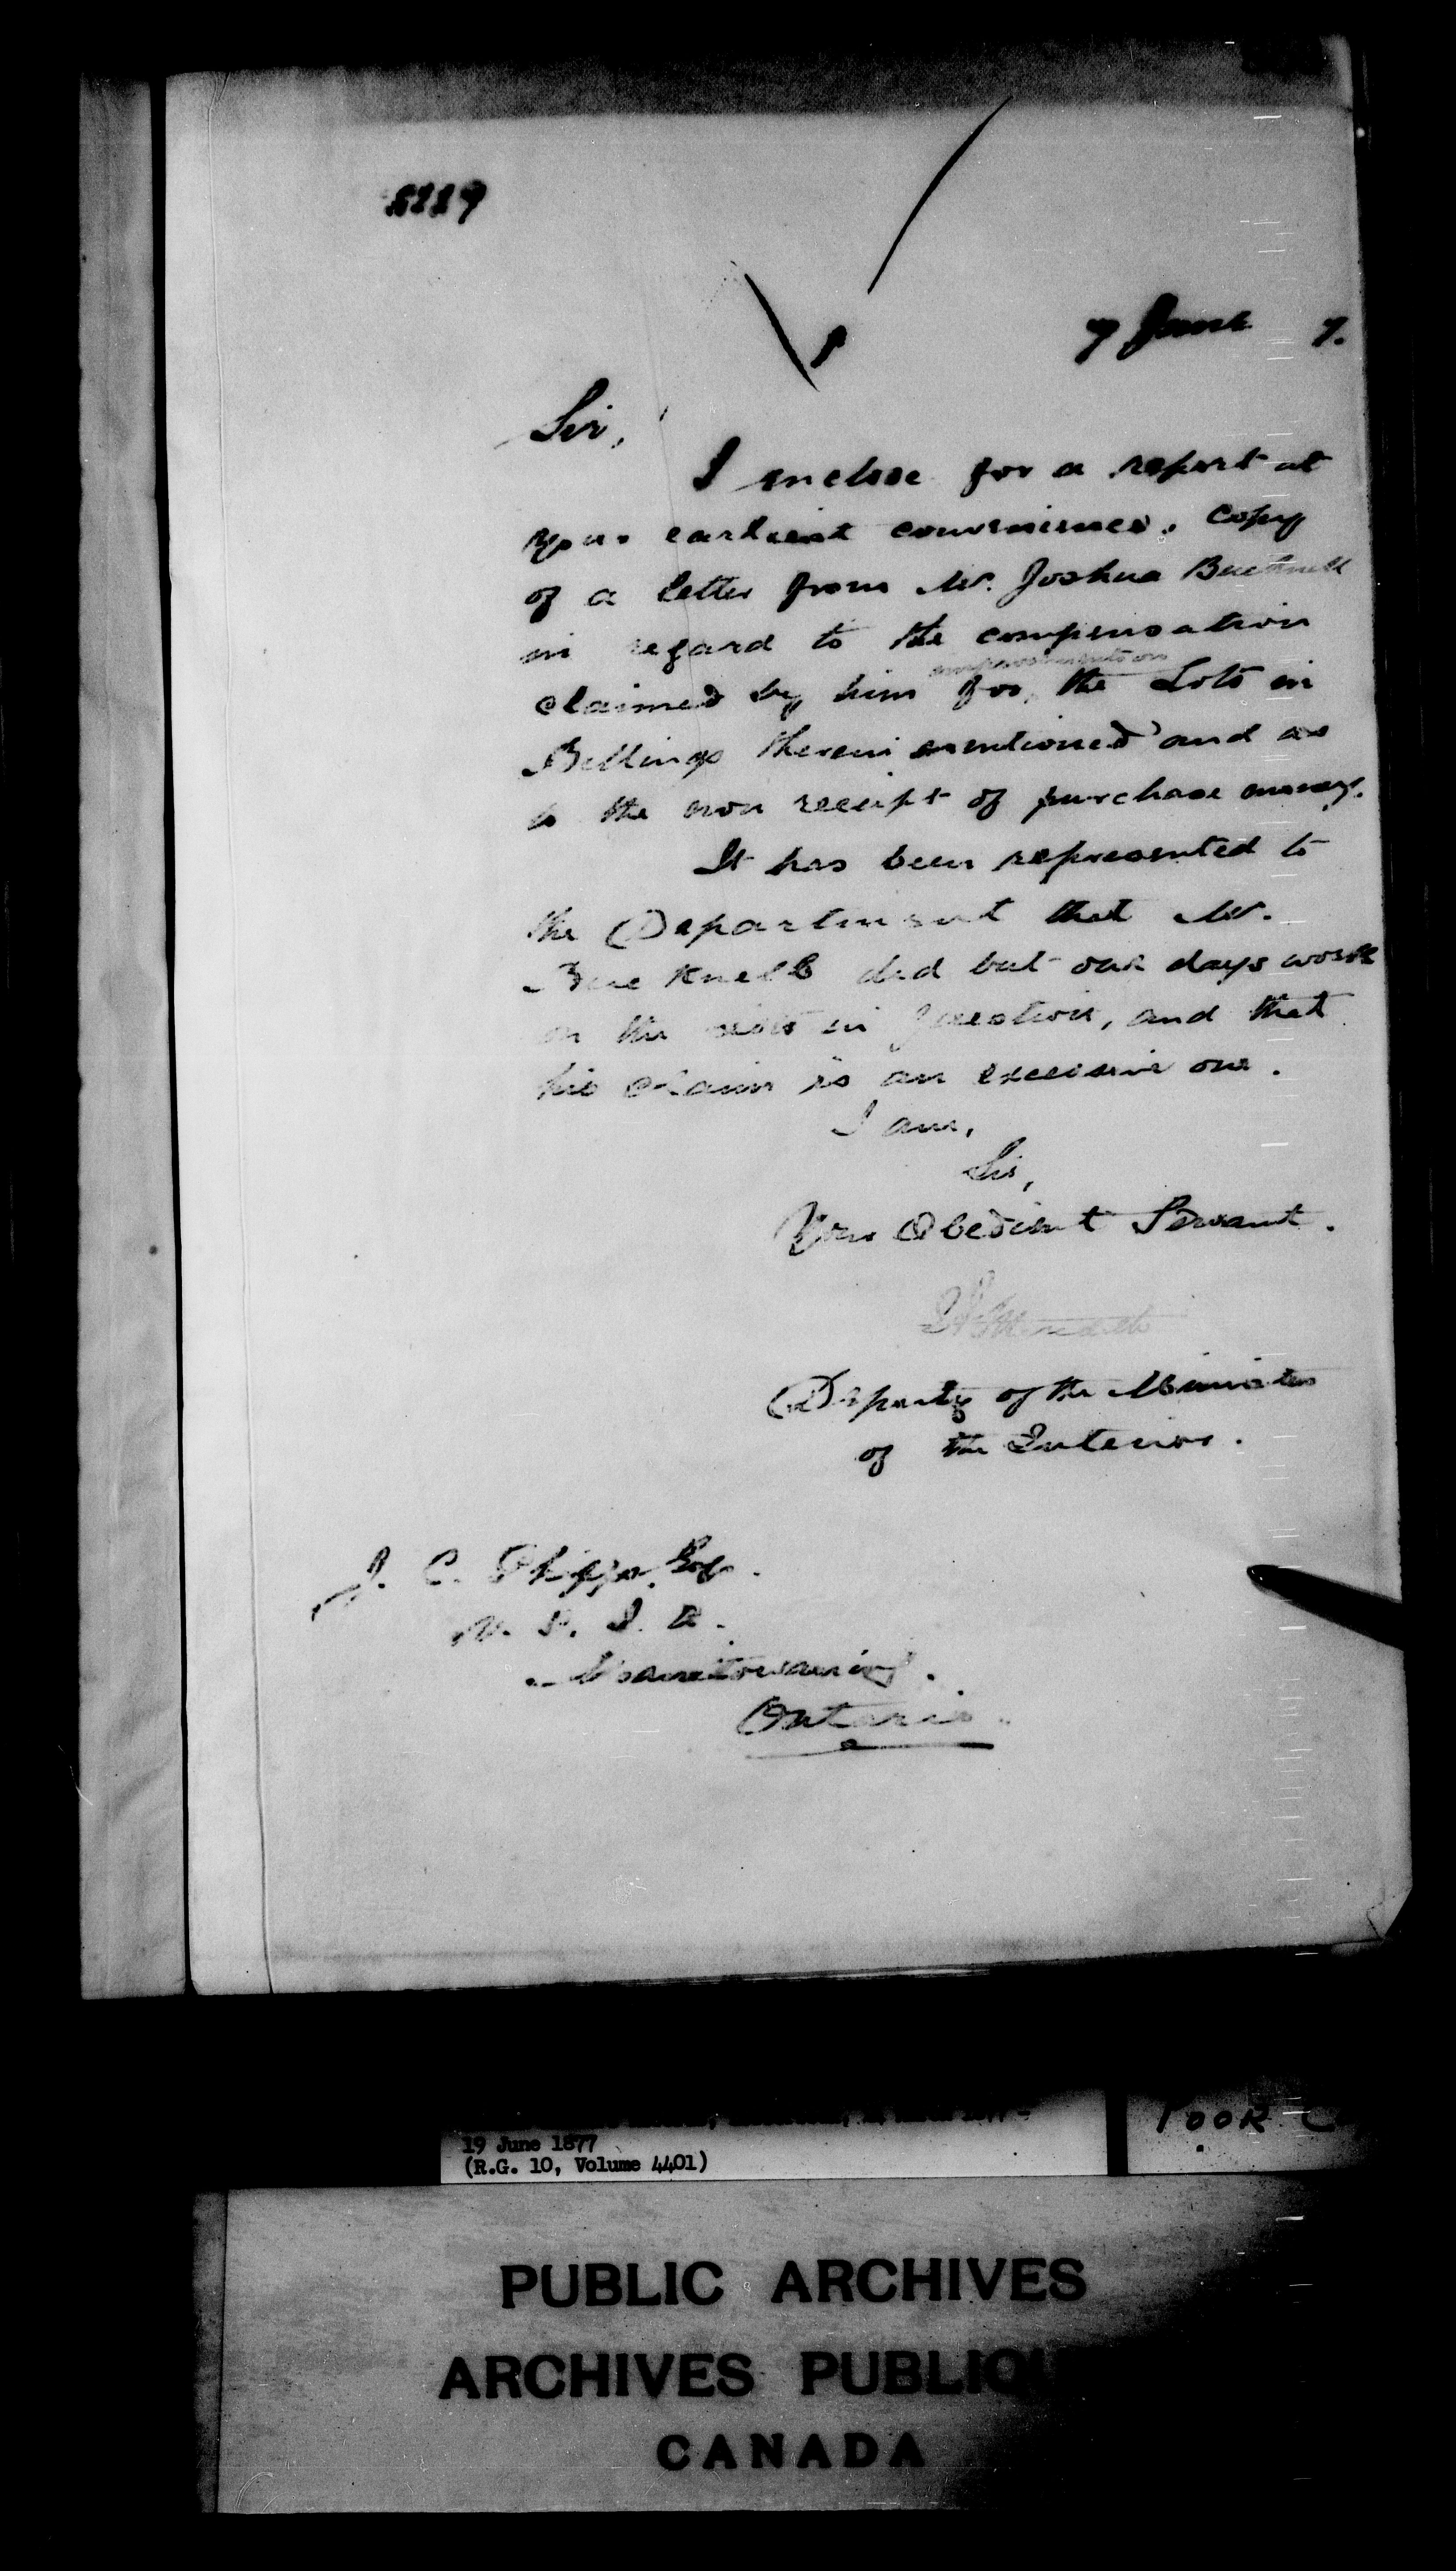 7 June 7.
Sir,
I enclose for a report at
your earliest convenience. copy
of a letter from Mr. Joshua
in regard to the compensation
improvements on
claimed by him for the Lots in
Billings therein mentioned and as
to the non receipt of purchase money.
It has been represented to
the Department that Mr.
did but one days work
on the in question, and that
his claim is an excessive one.
I am,
Sir,
Your Obedient Servant.
Meredith
Deputy of the Minister
of the Interior.
J. C. Phipps, Esq.
V. S. I. A.
Manitowaning.
Ontario.
19 June 1877
(R.G. 10, Volume 4401)
POOR
PUBLIC ARCHIVES
ARCHIVES
CANADA